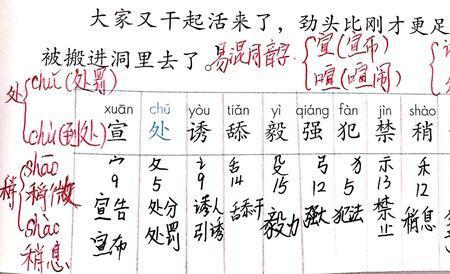 大家又干起活来了，劲头比刚才更足
被搬进洞里去了。易混同音字 宣(宣布)
喧(喧闹)
处 chǔ(处罚)
chù(到处)
稍 shāo 稍微
shào 稍息
xuān chǔ yòu tiǎn yì qiáng fàn jìn shào
宣 处 诱 舔 毅 强 犯 禁 稍
宀 夂 讠 舌 殳 弓 犭 示 禾
9 5 9 14 15 12 5 13 12
宣告 处分 诱人 舔舐 毅力 强大 犯法 禁止 稍息
宣布 处罚 引诱